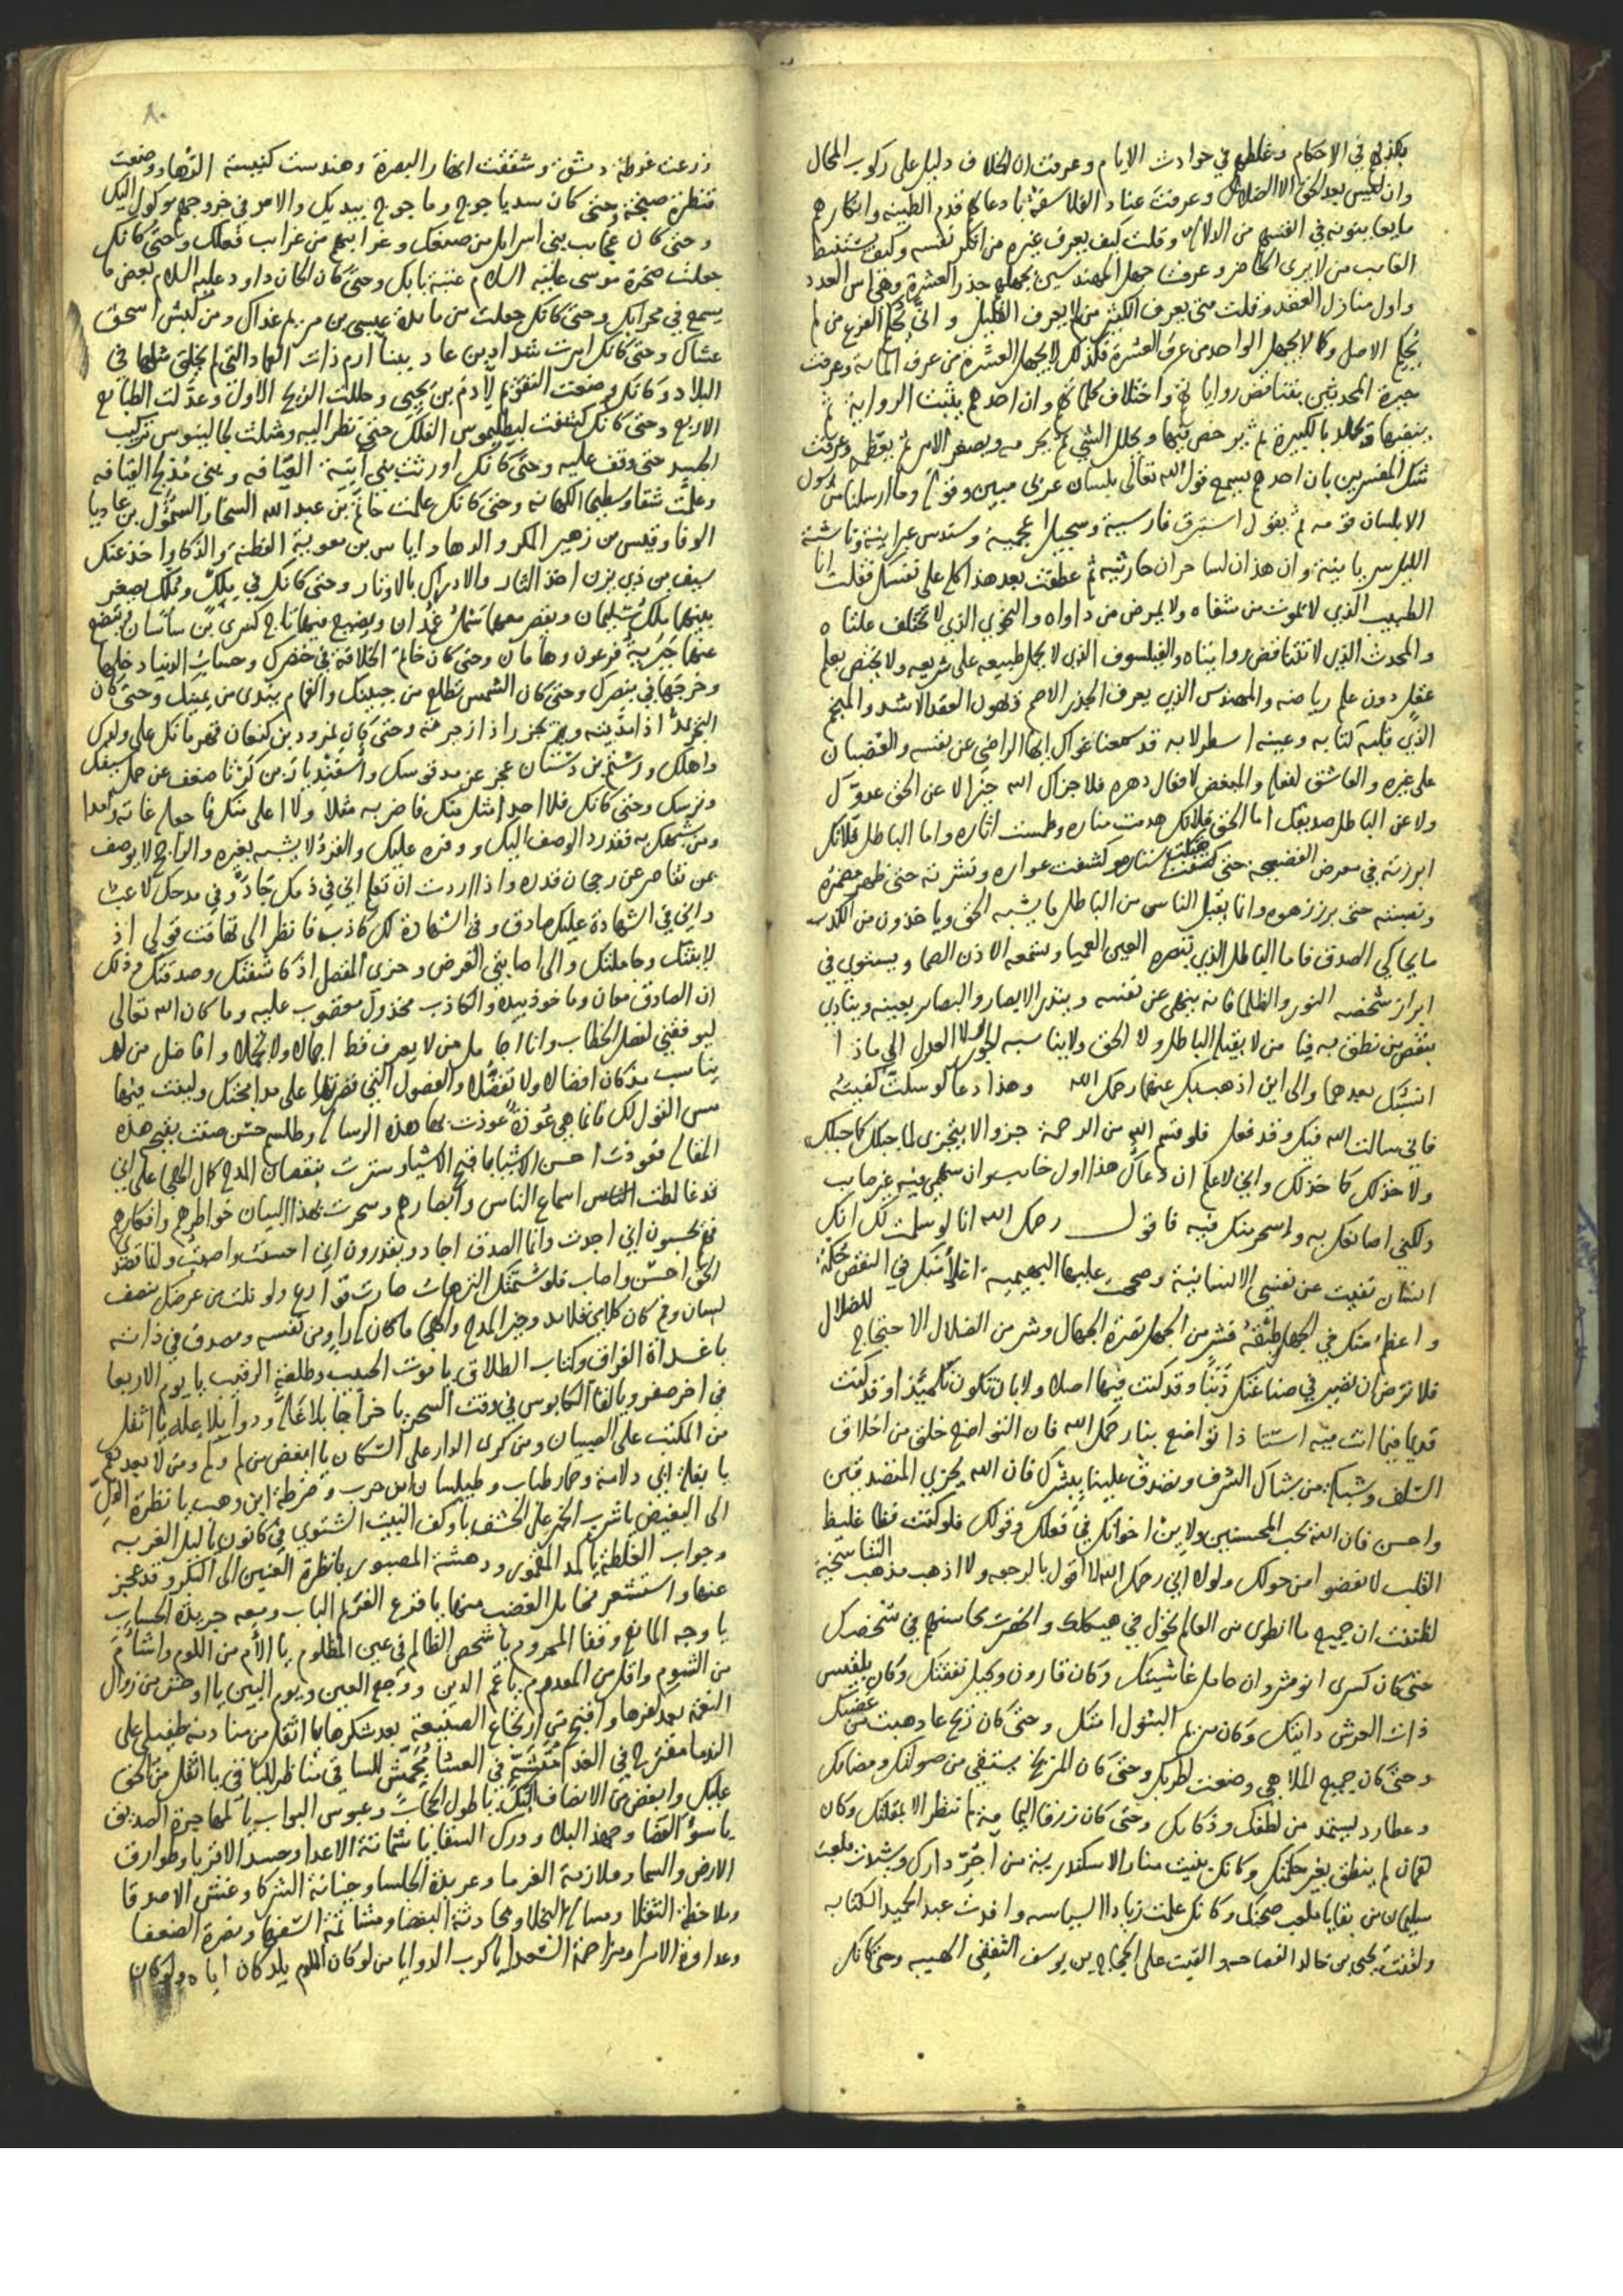 بكذبهم في الاحكام وغلطهم في حوادث الايام وعرفت ان الخلاف دليل على ركوب المحال
وان ليس بعد الحق الا الضلال وعرفت عناد الفلاسفة بادعائهم قدم الطينه وانكارهم
ما يعاينونه في انفسهم من الدلاله وقلت كيف يعرف غيره من انكر نفسه وكيف يستنبط
الغايب من لا يرى الحاضر وعرفت جهل المهندسين بجهلهم جذر العشرة وهي اس العدد
واول منازل العقد وقلت متى يعرف الكثير من لا يعرف القليل واني يحكم الفرع من لم
يحكم الاصل وكما لا يجهل الواحد من عرف العشرة فكذلك لا يجهل العشرة من عرف المائة وعرفت
حيرة المحدثين بتناقض رواياتهم واختلاف كلماتهم وان احدهم يثبت الرواية ثم
ينفيها ويخلد بالكبيرة ثم يرخص فيها ويحلل الشي ثم يحرمه ويصغر الامر ثم يعظمه وعرفت
شك المفسرين بان احدهم يسمع قول الله تعالى بلسان عربي مبين وقوله وما ارسلنا من رسول
الا بلسان قومه ثم يقول استبرق فارسية وسجيل اعجمية وسندس عبرانية وناشئة
الليل سريانية وان هذان لساحران حارثيه ثم عطفت بعد هذا كله على نفسك فقلت انا
الطبيب الذي لا يموت من شفاه ولا يمرض من داواه والنحوي الذي لا تختلف علتاه
والمحدث الذي لا تتناقض روايتاه والفيلسوف الذي لا يحمل طبيعه على شريعه ولا يختص بعلم
عقل دون علم رياضه والمهندس الذي يعرف الجذر الاصم ذهول العقد الاشد والمنجم
الذي قلبه كتابه وعينه اسطرلابه قد سمعنا دعواك ايها الراضي عن نفسه والغضبان
على غيره والعاشق لفعله والمبغض لافعال دهره فلا جزاك الله خيرا لا عن الحق عدوك
ولا عن الباطل صديقك اما الحق فلانك هدمت مناره وطمست اثاره واما الباطل فلانك
ابرزته في معرض الفضيحه حتى هتكت ستاره وكشفت عواره ونشرته حتى ظهر مضمره
ونصبته حتى برز زهوه وانما يقبل الناس من الباطل ما يشبه الحق وياخذون من الكذب
ما يحاكي الصدق فاما الباطل الذي تبصره العين العميا وتسمعه الاذن الصما ويستوي في
ابراز شخصه النور والظلما فانه ينجلي عن نفسه وينذر الابصار والبصاير بعينه وينادي
بنقص من نطق به فيا من لا يقبله الباطل ولا الحق ولا يناسبه الجور ولا العدل الى ماذا
انسبك بعدهما والى اين اذهب بك عنهما رحمك الله وهذا دعا لو سكت كفيته
فاني سالت الله فيك وقد فعل فلو قسم الله من الرحمة جزوا لا يتجزى لما حبك كما حبك
ولا خذلك كما خذلك واني لاعلم ان دعاك هذا اول خايب وان سهمي فيه غير صايب
ولكني اصانعك به واسحر منك فيه فاقول رحمك الله انا لو سلمت لك انك
انسان نفيت عن نفسي الانسانية وصحت عليها البهيميه اغلا منك في النقص محلة
واعظم منك في الجهل طبقة فشر من الجهل نصرة الجهال وشر من الضلال الاحتجاج للضلال
فلا ترض ان تصير في صناعتك ذنبا وقد كنت فيها اصلا ولا بان تكون تلميذا وقد كنت
قديما فيما انت فيه استاذا تواضع بنا رحمك الله فان التواضع خلق من اخلاق
السلف وشبكة من شباك الشرف وتصدق علينا ببشرك فان الله يجزي المتصدقين
واحسن فان الله يحب المحسنين ولاين اخوانك في فعلك وقولك فلو كنت فظا غليظ
القلب لانفضوا من حولك ولولا اني رحمك الله لا اقول بالرجعه ولا اذهب مذهب التناسخية
لظننت ان جميع ما انطوى من العالم نخزل في هيكلك وانحصرت محاسنهم في شخصك
حتى كان كسرى انوشروان حامل غاشيتك وكان قارون وكيل نفقتك وكان بلقيس
ذات العرش دايتك وكان مريم البتول امتك وحتى كان ريح عاد هبت من غضبك
وحتى كان جميع الملاهي وضعت لطربك وحتى كان المريخ يستقي من صولتك ومضائك
وعطارد يستمد من لطفك وذكائك وحتى كان زرقا اليمامة لم تنظر الا بمقلتك وكان
لقمان لم ينطق بغير حكمتك وكانك بنيت منار الاسكندرية من آجر دارك وشيدت ملعب
سليمان من بقايا ملعب صحنك وكانك علمت زيادا السياسه وافدت عبد الحميد الكتابه
ولقنت يحيى بن خالد الفصاحه والقيت على الحجاج بن يوسف الثقفي الهيبه وحتى كانك
٨٠
زرعت غوطة دمشق وشققت انهار البصرة وهندست كنيسة الرها ووضعت
قنطرة صنجة وحتى كان سد ياجوج وماجوج بيديك والامر في خروجهم موكول اليك
وحتى كان عجايب بني اسرايل من صنعك وغرايبهم من غرايب فعلك وحتى كانك
جعلت صخرة موسى عليه السلام عتبة بابك وحتى كان الحان داود عليه السلام بعض ما
يسمع في محرابك وحتى كانك جعلت من مايدة عيسى بن مريم غداك ومن كبش اسحق
عشاك وحتى كانك امرت شداد بن عاد ببنا ارم ذات العماد التي لم يخلق مثلها في
البلاد وكانك وضعت التقويم لآدم بن يحيى وحللت الزيج الاول وعدلت الطبايع
الاربع وحتى كانك كشفت لبطليموس الفلك حتى نظر اليه ومثلت لجالينوس تركيب
الجسد حتى وقف عليه وحتى كانك اورثت بني القيافه وبني مدلج العيافه
وعلمت شقا وسطيحا الكهانه وحتى كانك علمت حاتم بن عبد الله السخا والسموأل بن عاديا
الوفا وقيس بن زهير المكر والدها واياس بن معوية الفطنة والذكا واخذ عنك
سيف بن ذي يزن اخذ الثار والادراك بالاوتار وحتى كانك في ملك وملك يصغر
بينهما ملك سليمان ويقصر معهما سمك غمدان ويضيع فيهما تاج كسرى بن ساسان ويتضع
عنهما جبرية فرعون وهامان وحتى كان خاتم الخلافة في خنصرك وحساب الدنيا دخلها
وخرجها في بنصرك وحتى كان الشمس تطلع من جبينك والغمام يندى من يمينك وحتى كان
واهلك ورستم بن دستان عجز عن مد قوسك واسفنديار بن ضعف عن حمل سيفك
وترسك وحتى كانك فلا احد امثل منك فاضرب به مثلا ولا اعلى منك فاجعله غاية وامدا
ومن شبهك به فقد رد الوصف اليك ووفره عليك والفرد لا يشبه بغيره والراجح لا يوصف
عمن تقاصر عن رجحان قدره واذا اردت ان تعلم اني في ذمك جاد وفي مدحك لاعب
واني في الشهادة عليك صادق وفي الشهادة لك كاذب فانظر الى تهافت قولي اذ
لاينتك وجاملتك والى اصابتي الغرض وحزي المفصل اذ كاشفتك وصدقتك وذلك
ان الصادق معان وماخوذ بيده والكاذب مخذول مغضوب عليه وما كان الله تعالى
ليوفقني لفصل الخطاب وانا اجامل من لا يعرف قط اجمالا ولا تجملا وافاضل من لم
يناسب مذ كان افضالا ولا تفضلا والفصول التي قصرتها على مدامحتك ولينت فيها
مس القول لك فانما هي عوذة عوذت بها هذه الرساله وطلسم حسن صنت بقبح هذه
المقاله فعوذت احسن الاشيا باقبح الاشيا وسترت بنقصان المدح كمال الهجا على اني
قد غالطت الناس اسماع الناس وابصارهم وسحرت بهذا البيان خواطرهم وافكارهم
فهم يحسبون اني اجدت وانما الصدق اجاد ويقدرون اني احسنت واصبت ولقايله
الحق احسن واصاب فلو شتمتك الترهات صارت قوارع ولو نلت من عرضك نصف
لسان وفم كان كلامي قلايد وخير المدح والهجا ما كان له راو من نفسه ومصدق في ذاته
يا غداة الفراق وكتاب الطلاق يا موت الحبيب وطلعة الرقيب يا يوم الاربعا
في اخر صفر ويا لقا الكابوس في وقت السحر يا خراجا بلا غله ودوا بلا علة يا اثقل
من المكتب على الصبيان ومن كرى الدار على السكان يا ابغض من لم ولم ومن لا بعد نعم
يا بغلة ابي دلامة وحمار طياب وطيلسان ابن حرب وضرطة ابن وهب يا نظرة الذل
الى البغيض يا شرب الخمر على الخسف يا وكف البيت الشتوي في كانون يا ليل الغربه
وجواب الغلطه يا كمد المغموم ودهشة المصبور يا نظرة العنين الى البكر وقد عجز
عنها واستشعر مخايل الغضب منها يا قرع الغريم الباب ومعه جريدة الحساب
يا وجه المانع وقفا المحروم يا شخص الظالم في عين المظلوم يا الأم من اللوم واشأم
من الشوم واقل من المعدوم يا غم الدين ووجع العين ويوم البين يا اوحش من زوال
النعمة بعد كفرها واقبح من ارتجاع الصنيعة بعد شكرها يا اثقل من منادمة طفيلي على
الندما مقترح في الغدا في العشا مجمش للساقي مناظر للباقي يا اثقل من الحق
عليك وابغض من الانصاف اليك يا طول الحجاب وعبوس البواب يا حيرة الصديق
يا سوء القضا وجهد البلا ودرك الشقا يا شماتة الاعدا وحسد الاقربا وطوارق
الارض والسما وملازمة الغرما وعربدة الجلسا وخيانة الشركا وغش الاصدقا
وملاحظة الثقلا ومسالة البخلا ومحادثة البغضا ومشاتمة السفها ونصرة الضعفا
وعداوة الامرا ومزاحمة السعدا يا كرب الدوا يا من لو كان اللوم يلد كان اباه ولو كان